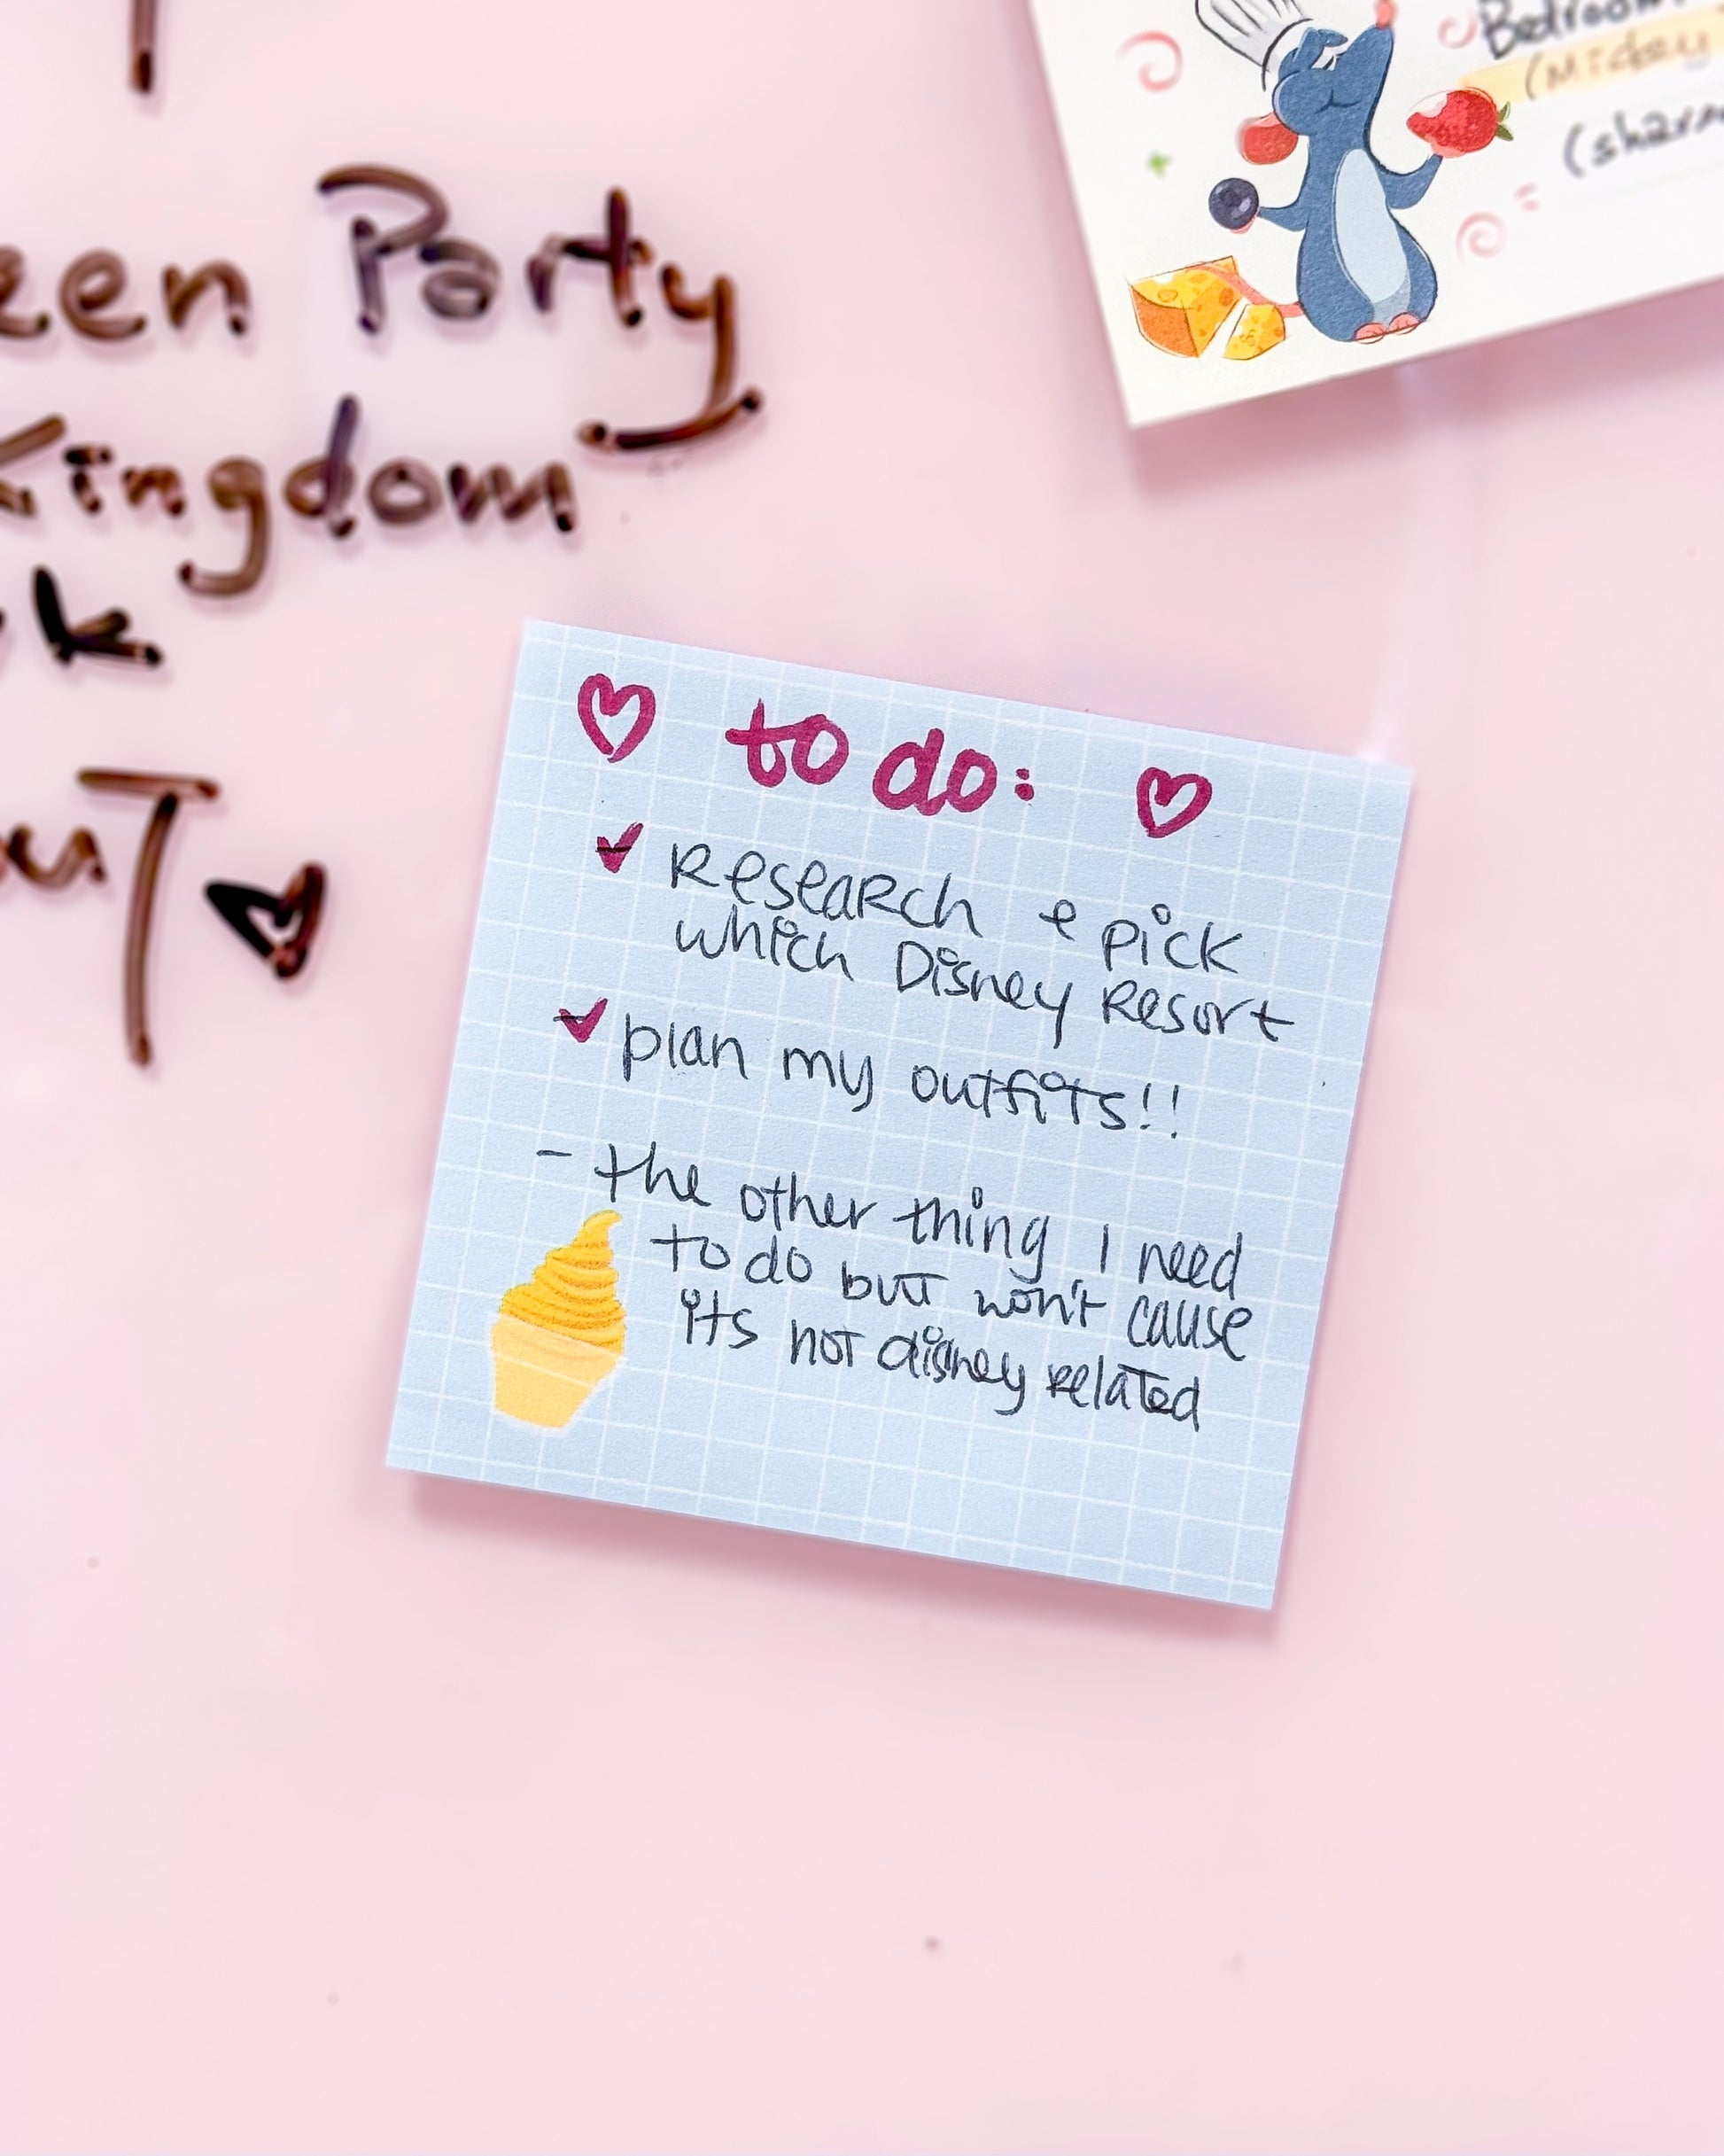 Party
Kingdom
Bedroom
(Mickey
♡ to do: ♡
✓ Research & pick
which Disney Resort
✓ plan my outfits!!
- the other thing I need
to do but won't cause
its not disney related